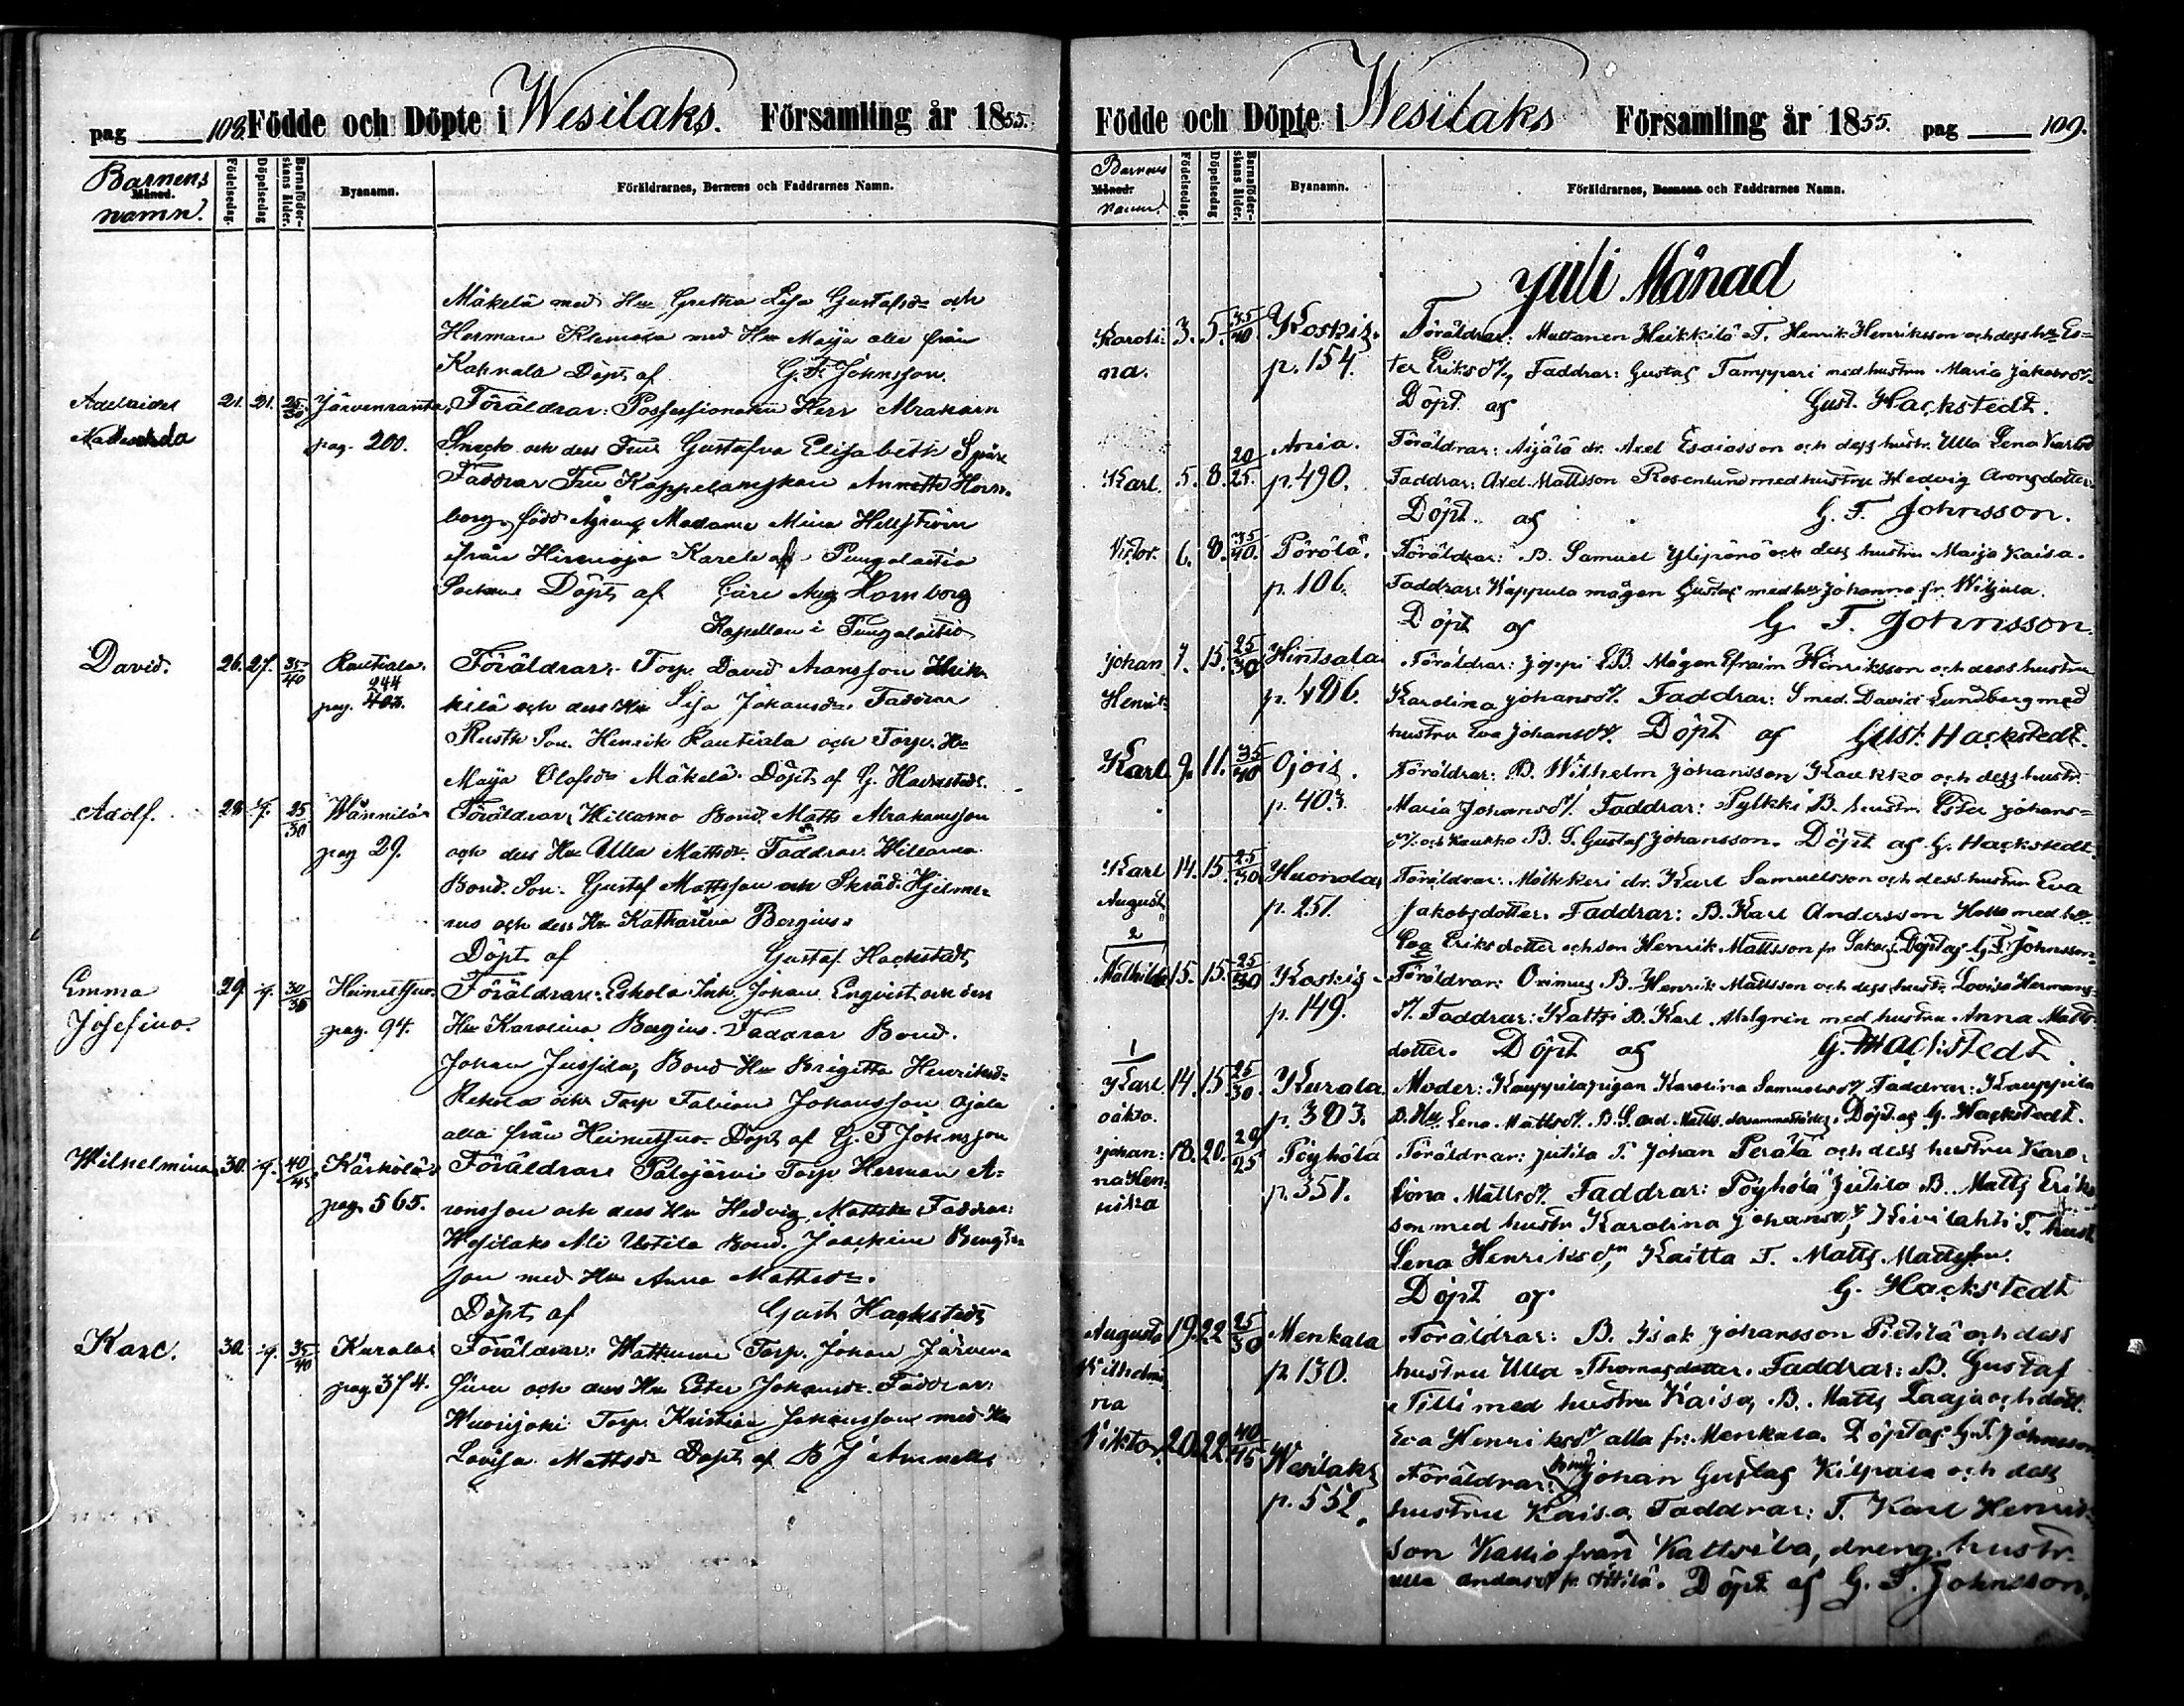 pag 108. Födde och Döpte i Wesilaks. Församling år 1855.
Barnens namn. Månad.
Födelsedag.
Döpelsedag
Barnaföderskans ålder.
Byanamn.
Föräldrarnes, Barnens och Faddrarnes Namn.
Mäkelä med Hu Gretha Lisa Gustafsd. och
Herman med Hu Maija alla från
Döpt af G. F. Johnsson.
Adelaide 21. 21. 25/30 Järvenranta Föräldrar: Possessionaten Herr Abraham
pag. 200. och dess Fru Gustafva Elisabeth Spåre
Faddrar Fru Kappelanskan Annette Horn-
borg, född Madame Mina Hellström
från af Pungalaitio
Socken Döpt af Aug Hornborg
Kapellan i Pungalaitio
David. 26. 27. 35/40 Rautiala. Föräldrar: Torp. David Aransson Heik-
pag. 244 kilä och dess Hu Lisa Johansd. Faddrar
Rusth Son. Henrik Rautiala och Torp. Hu
Maija Olofsd. Mäkelä. Döpt af G. Hackstedt.
Adolf. 28 25/30 Wännilä Föräldrar Willamo Bond. Matts Abrahamsson
pag 29. och dess Hu Ulla Mattsd. Faddrar Willamo
Bond. Son. Gustaf Mattsson och Skräd. Hjelme-
rus och dess Hu Katharina Bergius.
Döpt af Gustaf Hackstedt
Emma 29. 30/35 Heinutsuo Föräldrar: Eskola Inh. Johan Enqvist och dess
Josefina. pag. 94. Hu Karolina Bergius. Faddrar Bond.
Johan Jussila, Bond Hu Brigitta Henriksd.
Rekola och Torp Fabian Johansson Ojala
alla från Heinutsuo. Döpt af G. F. Johnsson
Wilhelmina 30. 40/45 Kärkölä Föräldrar Palojärvi Torp Herman A-
pag. 565. ronsson och dess Hu Hedvig Mattsd. Faddrar:
Wesilaks Ali Uotila Bond. Joachim Bengts-
son med Hu Anna Mattsd.
Döpt af Gust Hackstedt
Karl. 30. 35/40 Kurala Föräldrar: Torp. Johan Järven-
pag. 374. och dess Hu Ester Johansd. Faddrar:
Wuorijoki Torp. Kristian Johansson med Hu
Lovisa Mattsd. Döpt af B J
Födde och Döpte i Wesilaks Församling år 1855. pag 109.
Barnens namn. Månad.
Födelsedag.
Döpelsedag
Barnaföderskans ålder.
Byanamn.
Föräldrarnes, Barnens och Faddrarnes Namn.
Juli Månad
Karoli- 3. 5. 35/40 Koskis. Föräldrar: Mattanen Heikkilä T. Henrik Henriksson och dess hu Es-
na. p. 154. ter Eriksdr, Faddrar: Gustaf Tamppari med hustru Maria Jakobsdr.
Döpt af Gust. Hackstedt.
Karl. 5. 8. 20/25. Ania. Föräldrar: Äijälä dr. Axel Esaiasson och dess hustr. Ulla Lena Karlsd
p. 490. Faddrar: Axel Mattsson Rosenlund med hustru Hedvig Aronsdotter.
Döpt af G. F. Johnsson.
Victor. 6. 8. 35/40. Pörölä. Föräldrar: B. Samuel Ylipörö och dess hustru Maija Kaisa.
p. 106. Faddrar: Kappula mågen Gustaf med hu Johanna fr. Wiljula.
Döpt af G. F. Johnsson.
Johan 7. 15. 25/30 Hintsala. Föräldrar: Joppi B. Mågen Efraim Henriksson och dess hustru
Henrik p. 486. Karolina Johansdr. Faddrar: Smed. David Lundberg med
hustru Eva Johansdr. Döpt af Gust. Hackstedt.
Karl. 9. 11. 35/40 Ojois. Föräldrar: B. Wilhelm Johansson Kaukko och dess hustr.
p. 403. Maria Johansdr. Faddrar: Pylkki B. hustr. Ester Johans-
dr. och Kaukko B. S. Gustaf Johansson. Döpt af G. Hackstedt.
Karl 14. 15. 25/30 Huonola Föräldrar: Mölkkeri dr. Karl Samuelsson och dess hustru Eva
August p. 251. Jakobsdotter. Faddrar: B. Karl Andersson Hollo med hu
Eva Eriksdotter och son Henrik Mattsson fr. Döpt af G. F. Johnsson.
2
Mathilda 15. 15. 25/30 Koskis. Föräldrar: Onimus B. Henrik Mattsson och dess hustr. Lovisa Hermans-
p. 149. dr. Faddrar: Kattsi B. Karl Malgrin med hustru Anna Matts-
dotter. Döpt af G. Hackstedt
1
Karl 14. 15 25/30. Kurala Moder: Kauppilapigan Karolina Samuelsdr, Faddrar: Kauppila
oäkta. p. 383. B. Hu. Lena Mattsdr. B. S. och Matts Döpt af G. Hackstedt.
Johan- 18. 20. 20/25 Pöyhölä Föräldrar: Jutila T. Johan Perälä och dess hustru Karo-
na Hen- p. 351. lina Mattsdr. Faddrar: Pöyhölä Jutila B. Matts Eriks-
rika son med hustr. Karolina Johansdr, Kivilahti T. hustr
Lena Henriksdr, Kaitta T. Matts Mattsson.
Döpt af G. Hackstedt
Augusta 19. 22. 25/30 Menkala Föräldrar: B. Isak Johansson Pietilä och dess
Wilhelmi- p. 130. hustru Ulla Thomasdotter. Faddrar: B. Gustaf
na Tilli med hustru Kaisa, B. Matts Laaja och dott.
Eva Henriksdr alla fr. Menkala. Döpt af G. F. Johnsson
Viktor. 20. 22. 40/45 Wesilaks Föräldrar: Johan Gustaf Kilpala och dess
p. 552. hustru Kaisa, Faddrar: T. Karl Henriks-
son Kallio från Kaltsila, dreng. hustr.
Ulla Andersdr fr. Döpt af G. F. Johnsson.